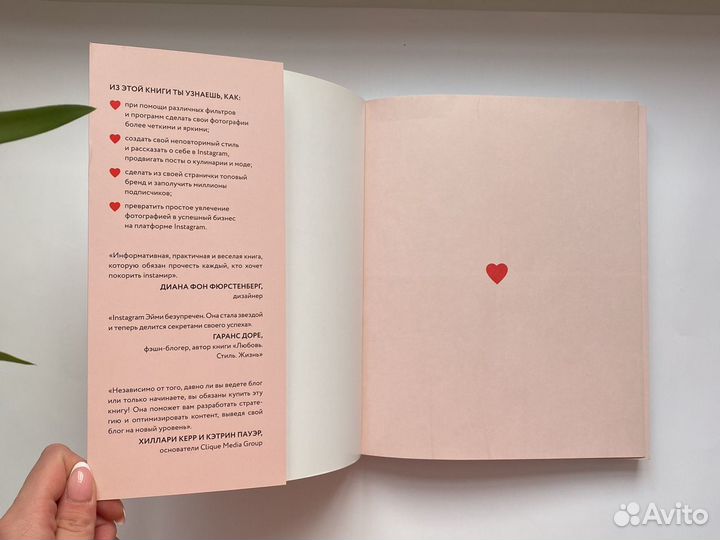 ИЗ ЭТОЙ КНИГИ ТЫ УЗНАЕШЬ, КАК:
при помощи различных фильтров
и программ сделать свои фотографии
более четкими и яркими;
создать свой неповторимый стиль
и рассказать о себе в Instagram,
продвигать посты о кулинарии и моде;
сделать из своей странички топовый
бренд и заполучить миллионы
подписчиков;
превратить простое увлечение
фотографией в успешный бизнес
на платформе Instagram.
«Информативная, практичная и веселая книга,
которую обязан прочесть каждый, кто хочет
покорить instaмир».
ДИАНА ФОН ФЮРСТЕНБЕРГ,
дизайнер
«Instagram Эйми безупречен. Она стала звездой
и теперь делится секретами своего успеха».
ГАРАНС ДОРЕ,
фэшн-блогер, автор книги «Любовь.
Стиль. Жизнь»
«Независимо от того, давно ли вы ведете блог
или только начинаете, вы обязаны купить эту
книгу! Она поможет вам разработать страте-
гию и оптимизировать контент, выведя свой
блог на новый уровень».
ХИЛЛАРИ КЕРР И КЭТРИН ПАУЭР,
основатели Clique Media Group
Avito